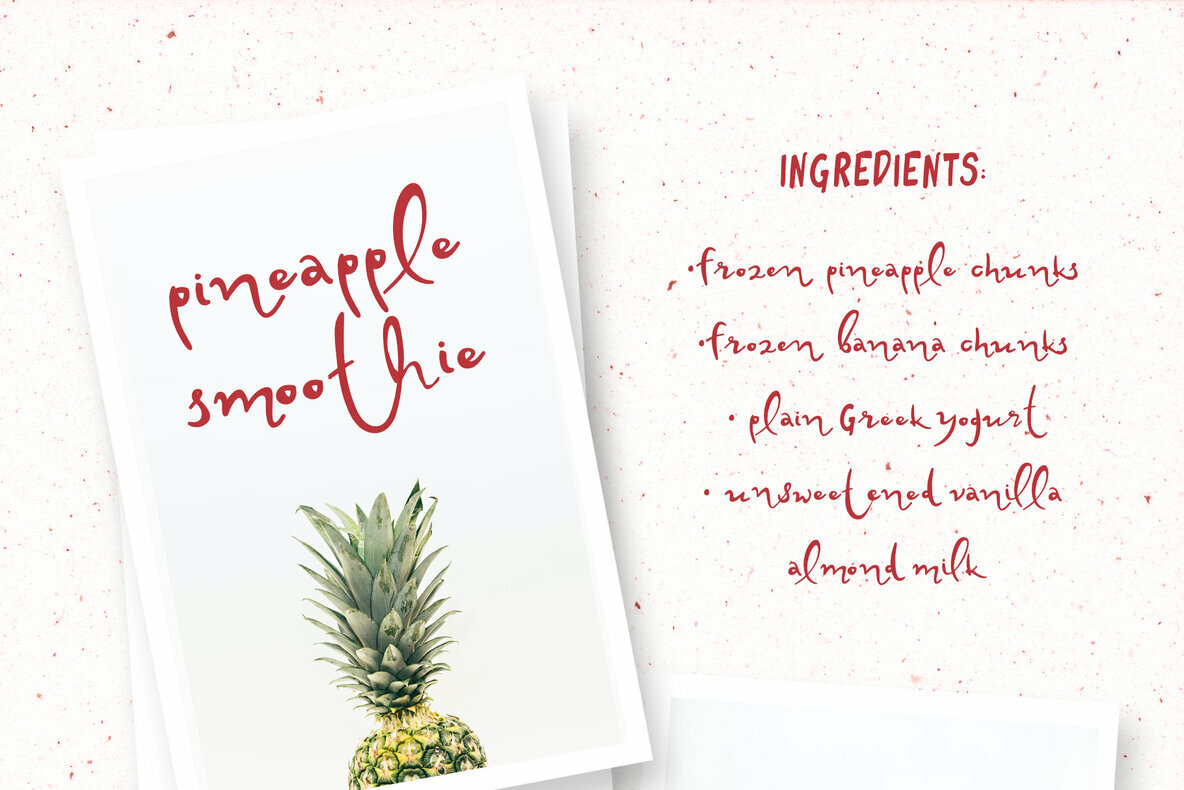 pineapple
smoothie
INGREDIENTS:
•frozen pineapple chunks
•frozen banana chunks
• plain Greek yogurt
• unsweetened vanilla
almond milk